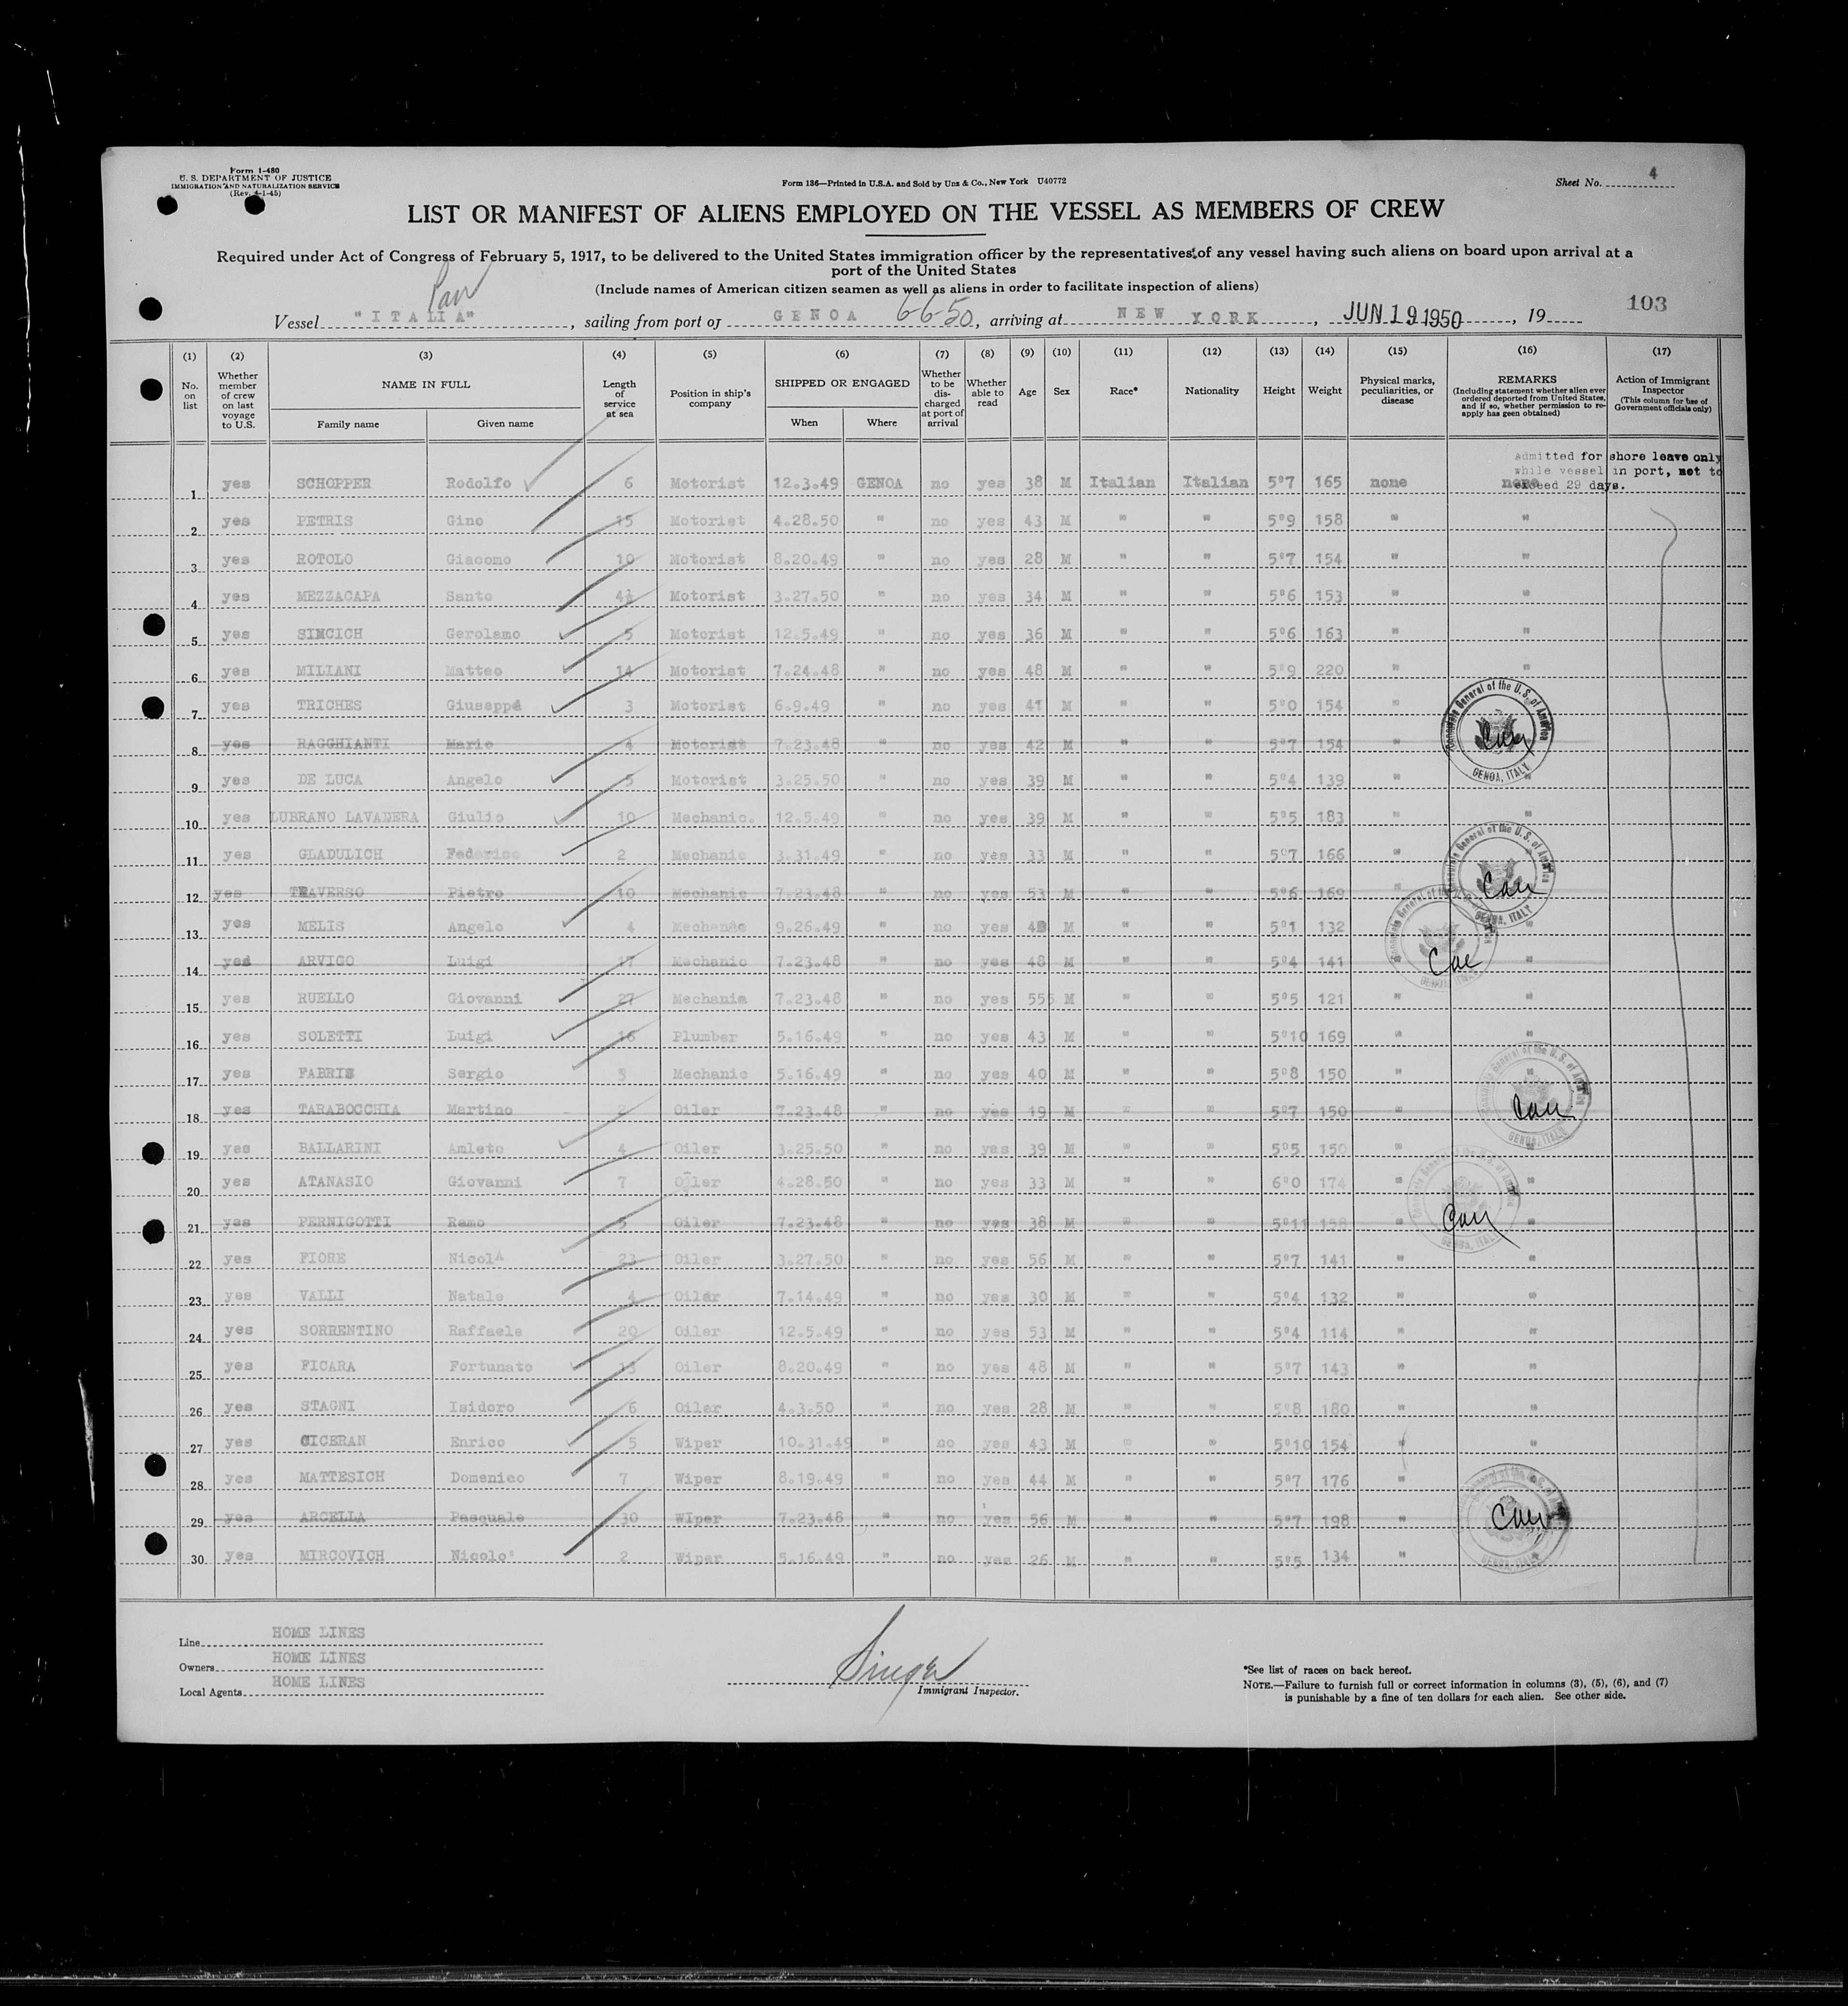 Form I-480
U. S. DEPARTMENT OF JUSTICE
IMMIGRATION AND NATURALIZATION SERVICE
(Rev. 4-1-45)
Form 136—Printed in U.S.A. and Sold by Unz & Co., New York U40772
Sheet No. 4
LIST OR MANIFEST OF ALIENS EMPLOYED ON THE VESSEL AS MEMBERS OF CREW
Required under Act of Congress of February 5, 1917, to be delivered to the United States immigration officer by the representatives of any vessel having such aliens on board upon arrival at a
port of the United States
(Include names of American citizen seamen as well as aliens in order to facilitate inspection of aliens)
103
Vessel "ITALIA", sailing from port of GENOA 6-6-50, arriving at NEW YORK, JUN 19 1950, 19
(1) (2) (3) (4) (5) (6) (7) (8) (9) (10) (11) (12) (13) (14) (15) (16) (17)
No. on list
Whether member of crew on last voyage to U.S.
NAME IN FULL
Family name
Given name
Length of service at sea
Position in ship's company
SHIPPED OR ENGAGED
When
Where
Whether to be discharged at port of arrival
Whether able to read
Age
Sex
Race*
Nationality
Height
Weight
Physical marks, peculiarities, or disease
REMARKS
(Including statement whether alien ever ordered deported from United States, and if so, whether permission to reapply has been obtained)
Action of Immigrant Inspector
(This column for use of Government officials only)
admitted for shore leave only
while vessel in port, not to
exceed 29 days.
1 yes SCHOPPER Rodolfo 6 Motorist 12.3.49 GENOA no yes 38 M Italian Italian 5"7 165 none none
2 yes PETRIS Gino 15 Motorist 4.28.50 " no yes 43 M " " 5"9 158 " "
3 yes ROTOLO Giacomo 10 Motorist 8.20.49 " no yes 28 M " " 5"7 154 " "
4 yes MEZZACAPA Santo 4½ Motorist 3.27.50 " no yes 34 M " " 5"6 153 " "
5 yes SIMCICH Gerolamo 5 Motorist 12.5.49 " no yes 36 M " " 5"6 163 " "
6 yes MILIANI Matteo 14 Motorist 7.24.48 " no yes 48 M " " 5"9 220 " "
7 yes TRICHES Giuseppe 3 Motorist 6.9.49 " no yes 41 M " " 5"0 154 "
8 yes RAGGHIANTI Mario 4 Motorist 7.23.48 " no yes 42 M " " 5"7 154 "
9 yes DE LUCA Angelo 5 Motorist 3.25.50 " no yes 39 M " " 5"4 139 " "
10 yes LUBRANO LAVADERA Giulio 10 Mechanic. 12.5.49 " no yes 39 M " " 5"5 183 " "
11 yes GLADULICH Federico 2 Mechanic 3.31.49 " no yes 33 M " " 5"7 166 "
12 yes TRAVERSO Pietro 10 Mechanic 7.23.48 " no yes 53 M " " 5"6 169 "
13 yes MELIS Angelo 4 Mechanic 9.26.49 " no yes M " " 5"1 132 "
14 yes ARVIGO Luigi 17 Mechanic 7.23.48 " no yes 48 M " " 5"4 141 " "
15 yes RUELLO Giovanni 27 Mechanic 7.23.48 " no yes 55 M " " 5"5 121 " "
16 yes SOLETTI Luigi 16 Plumber 5.16.49 " no yes 43 M " " 5"10 169 " "
17 yes FABRIS Sergio 3 Mechanic 5.16.49 " no yes 40 M " " 5"8 150 " "
18 yes TARABOCCHIA Martino 2 Oiler 7.23.48 " no yes 19 M " " 5"7 150 "
19 yes BALLARINI Amleto 4 Oiler 3.25.50 " no yes 39 M " " 5"5 150 " "
20 yes ATANASIO Giovanni 7 Oiler 4.28.50 " no yes 33 M " " 6"0 174 " "
21 yes PERNIGOTTI Remo 5 Oiler 7.23.48 " no yes 38 M " " 5"11 158 " "
22 yes FIORE Nicola 23 Oiler 3.27.50 " no yes 56 M " " 5"7 141 " "
23 yes VALLI Natale 4 Oiler 7.14.49 " no yes 30 M " " 5"4 132 " "
24 yes SORRENTINO Raffaele 20 Oiler 12.5.49 " no yes 53 M " " 5"4 114 " "
25 yes FICARA Fortunato 13 Oiler 8.20.49 " no yes 48 M " " 5"7 143 " "
26 yes STAGNI Isidoro 6 Oiler 4.3.50 " no yes 28 M " " 5"8 180 " "
27 yes CICERAN Enrico 5 Wiper 10.31.49 " no yes 43 M " " 5"10 154 " "
28 yes MATTESICH Domenico 7 Wiper 8.19.49 " no yes 44 M " " 5"7 176 " "
29 yes ARCELLA Pasquale 30 WIper 7.23.48 " no yes 56 M " " 5"7 198 "
30 yes MIRCOVICH Nicolo' 2 Wiper 5.16.49 " no yes 26 M " " 5"5 134 " "
Consulate General of the U.S. of America
GENOA, ITALY
Consulate General of the U.S. of America
GENOA, ITALY
Consulate General of the U.S. of America
GENOA, ITALY
Consulate General of the U.S. of America
GENOA, ITALY
Consulate General of the U.S. of America
GENOA, ITALY
Consulate General of the U.S. of America
GENOA, ITALY
Line HOME LINES
Owners HOME LINES
Local Agents HOME LINES
Singer
Immigrant Inspector.
*See list of races on back hereof.
NOTE.—Failure to furnish full or correct information in columns (3), (5), (6), and (7)
is punishable by a fine of ten dollars for each alien. See other side.